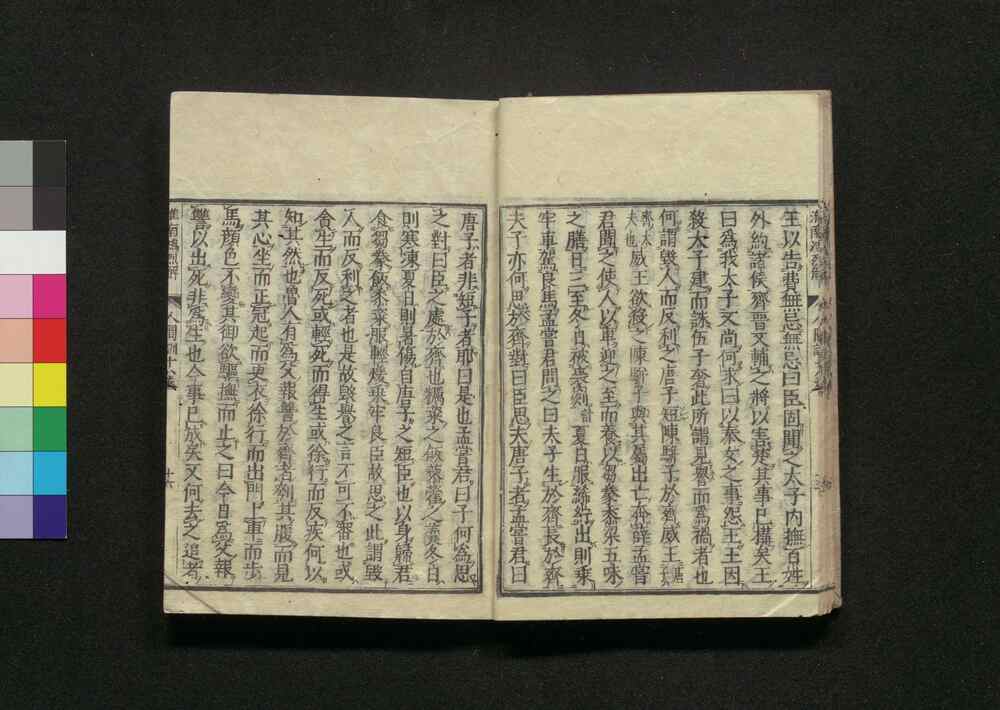 王以告費無忌無忌曰臣固聞之太子内撫百姓
外約諸侯齊晉又輔之將以害楚其事已搆矣王
曰為我太子又尚何求曰以秦女之事怨王王因
殺太子建而誅伍子奢此所謂見譽而爲禍者也
何謂毀人而反利之唐子短陳駢子於齊威王
齊大
夫也
威王欲殺之陳駢子與其屬出亡奔薛孟嘗
君聞之使人以車迎之至而養以芻豢黍粱五味
之膳日三至冬日被裘罽夏日服絺紵出則乘
牢車駕良馬孟嘗君問之曰夫子生於齊長於齊
夫子亦何思於齊對曰臣思夫唐子者孟嘗君曰
唐子者非短子者耶曰是也孟嘗君曰子何為思
之對曰臣之處於齊也糲粢之飯藜藿之羹冬日
則寒凍夏日則暑傷自唐子之短臣也以身歸君
食芻豢飯黍粱服輕煖乘牢良臣故思之此謂毀
人而反利之者也是故毀譽之言不可不審也或
貪生而反死或輕死而得生或徐行而反疾何以
知其然也魯人有為父報讐於齊者刳其腹而見
其心坐而正冠起而更衣徐行而出門上車而步
馬顔色不變其御欲驅撫而止之曰今日爲父報
讐以出死非爲生也今事已成矣又何去之追者
淮南鴻烈解
人間訓十八
十六